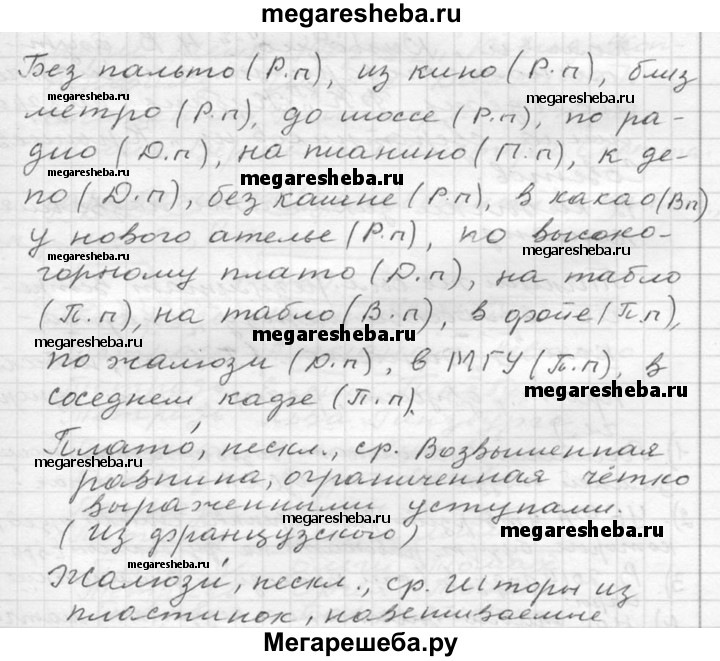 megaresheba.ru
Без пальто (Р.п), из кино (Р.п), близ
megaresheba.ru megaresheba.ru
метро (Р.п), до шоссе (Р.п), по ра-
дио (Д.п), на пианино (П.п), к де-
megaresheba.ru megaresheba.ru
по (Д.п), без кашне (Р.п), в какао (Вп)
у нового ателье (Р.п), по высоко-
megaresheba.ru megaresheba.ru
горному плато (Д.п), на табло
(П.п), на табло (В.п), в фойе (П.п),
megaresheba.ru megaresheba.ru
по жалюзи (Д.п), в МГУ (П.п), в
соседнем кафе (П.п).
megaresheba.ru megaresheba.ru
Плато́, нескл., ср. Возвышенная
megaresheba.ru
равнина, ограниченная чётко
выраженными уступами.
megaresheba.ru megaresheba.ru
(Из французского)
megaresheba.ru
Жалюзи́, нескл., ср. Шторы из
пластинок, навешиваемые
Мегарешеба.ру